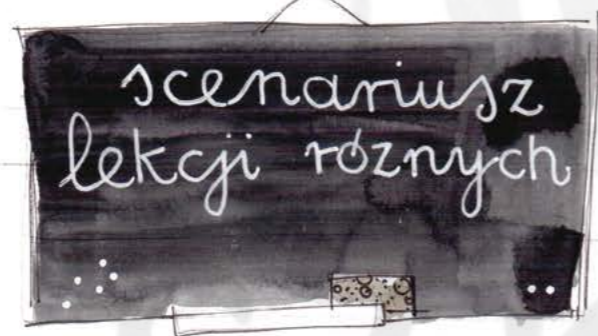 scenariusz
lekcji różnych